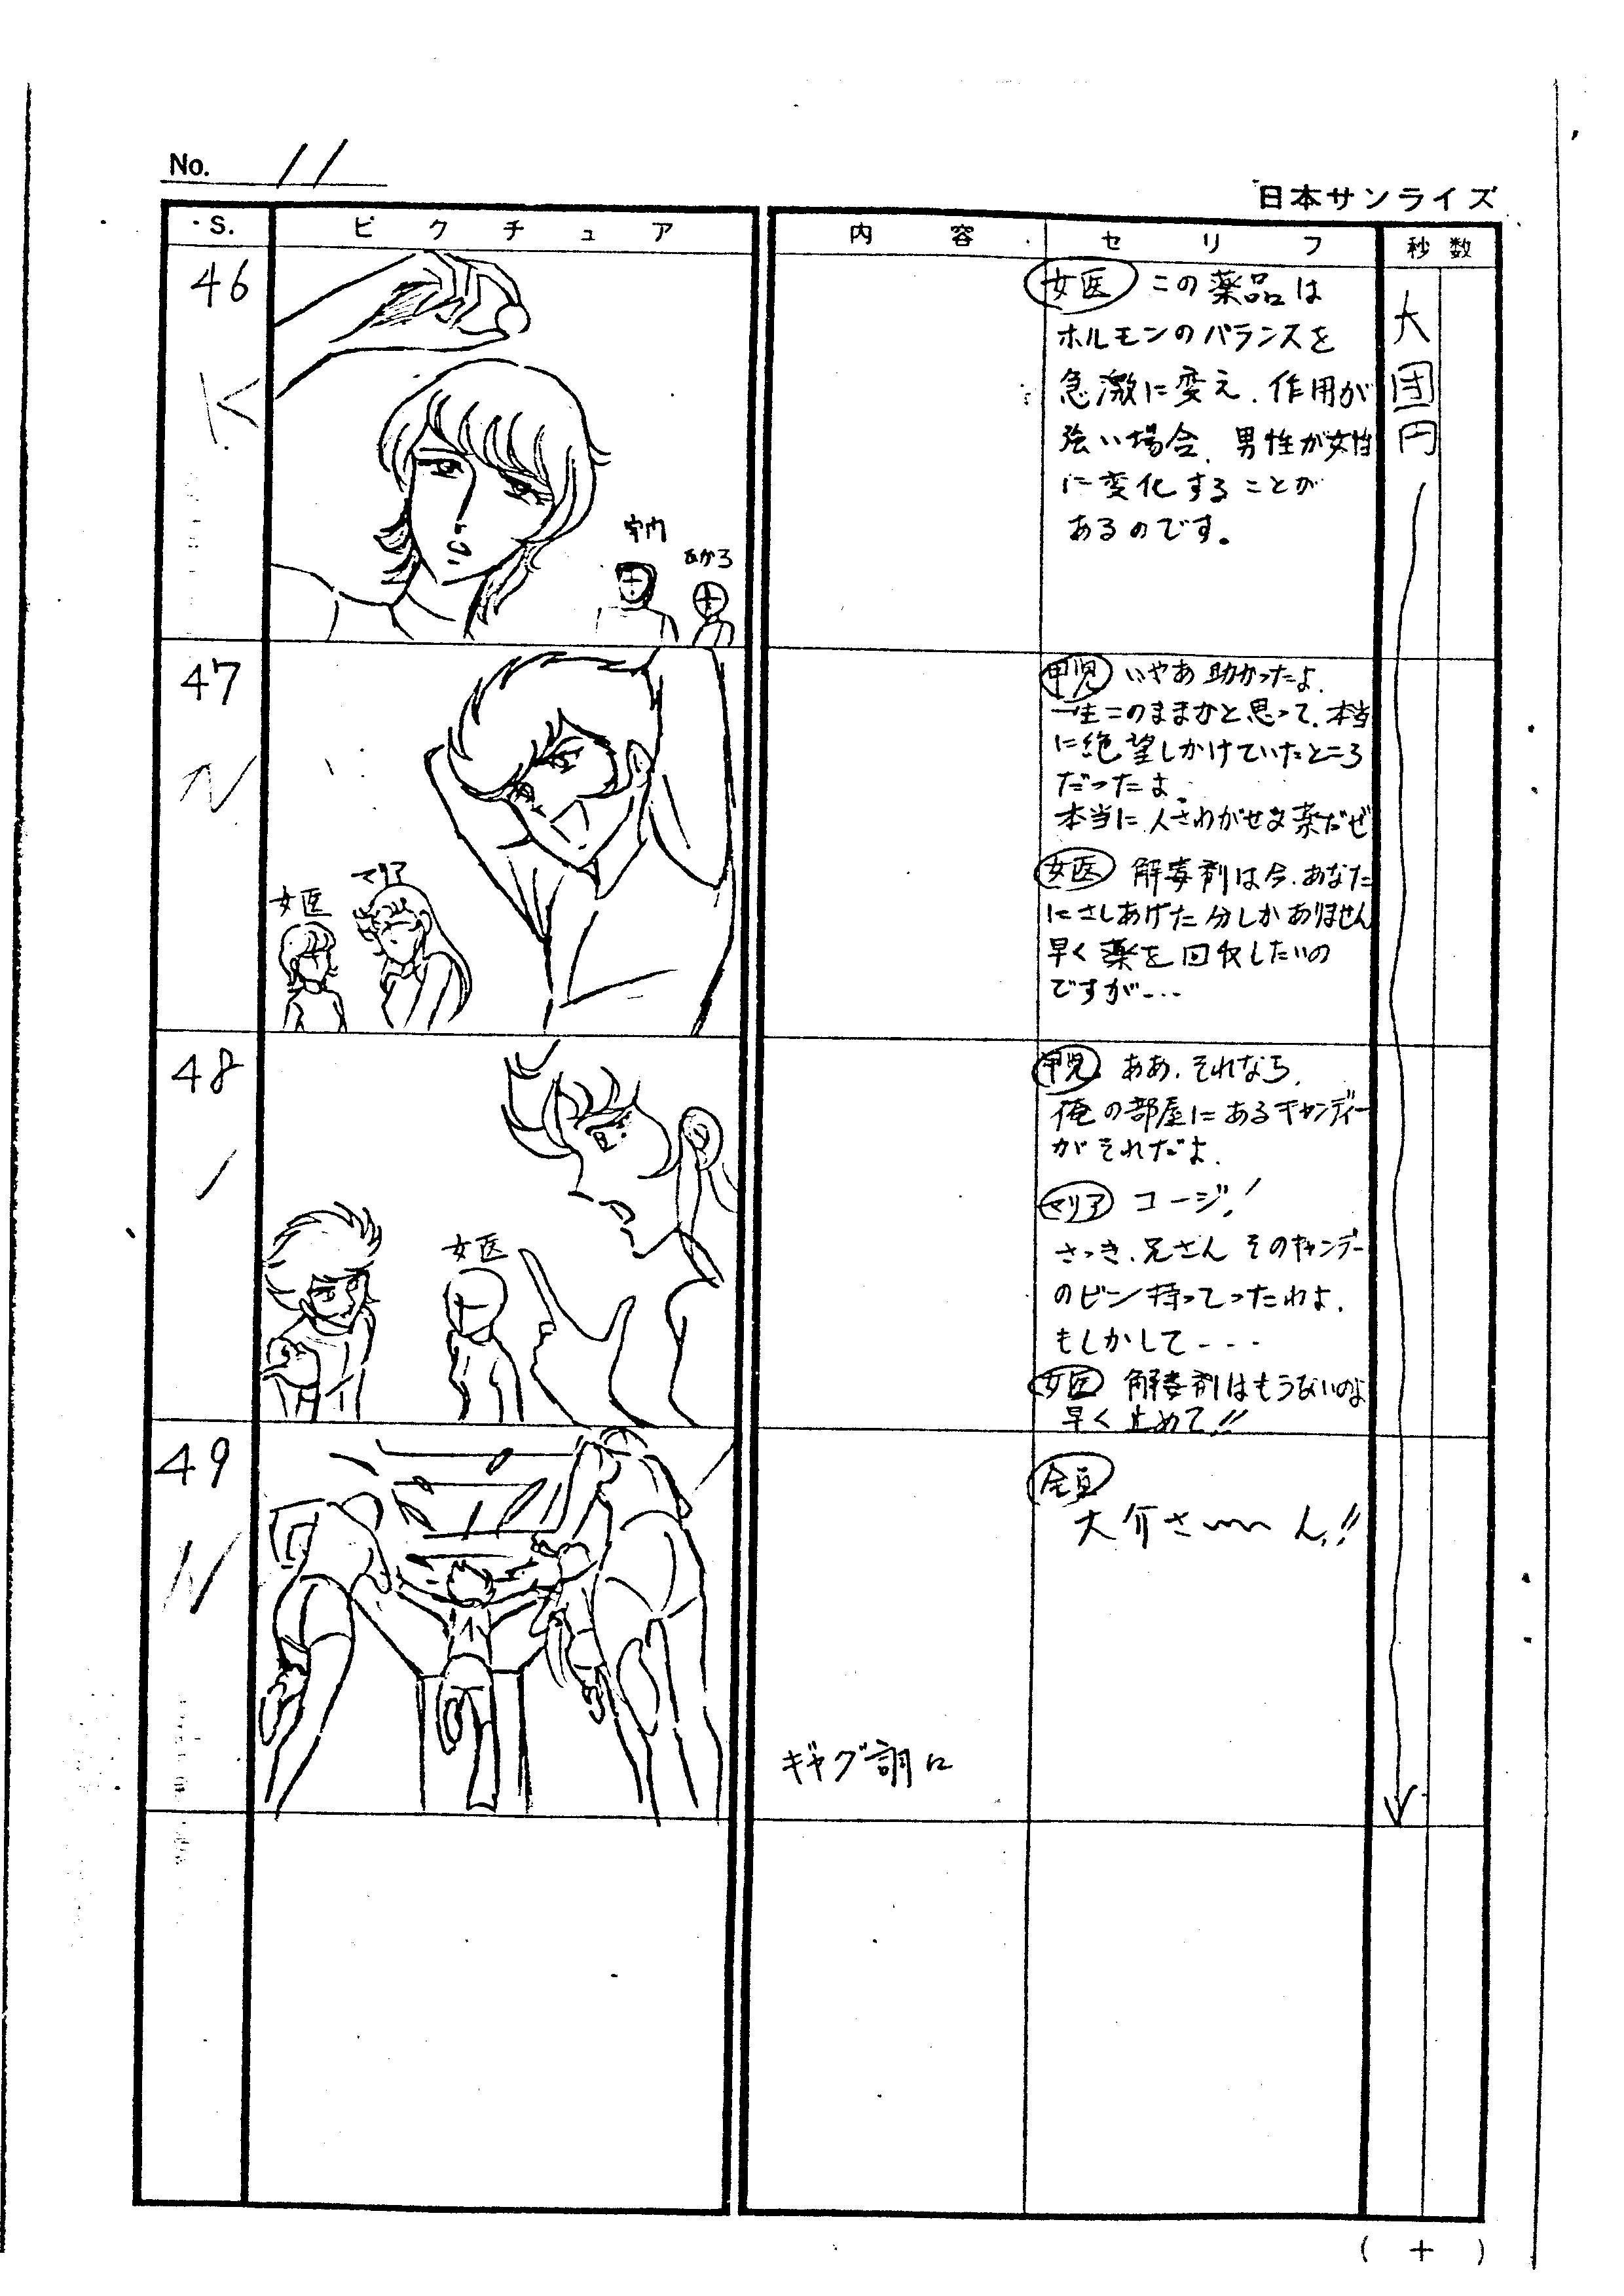 No. 11
日本サンライズ
S. ピクチュア 内容 セリフ 秒数
46
K
宇門
ひかる
女医 この薬品は
ホルモンのバランスを
急激に変え、作用が
強い場合、男性が女性
に変化することが
あるのです。
大団円
47
N
女医
マリア
甲児 いやあ 助かったよ、
一生このままかと思って、本当
に絶望しかけていたところ
だったよ、
本当に人さわがせな薬だぜ
女医 解毒剤は今、あなた
にさしあげた分しかありません
早く薬を回収したいの
ですが---
48
女医
甲児 ああ、それなら、
俺の部屋にあるキャンディー
がそれだよ、
マリア コージ!
さっき、兄さん そのキャンデー
のビン持ってったわよ、
もしかして---
女医 解毒剤はもうないのよ
早く止めて!!
49
N
ギャグ調に
全員
大介さ〜〜〜ん!!
( + )